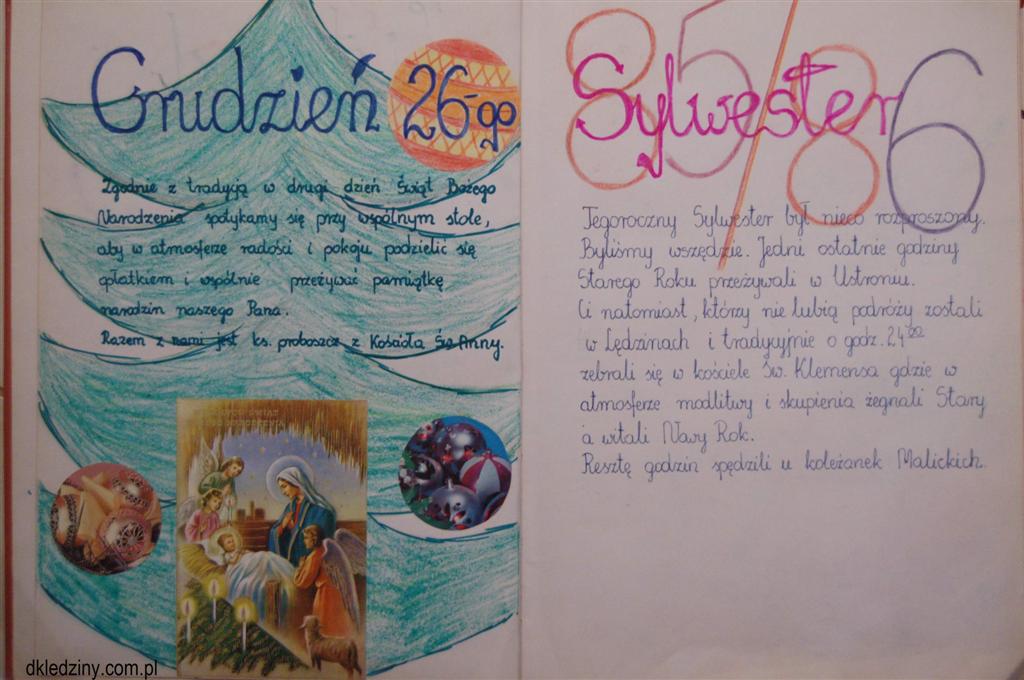 Grudzień 26-go
Zgodnie z tradycją w drugi dzień Świąt Bożego
Narodzenia spotykamy się przy wspólnym stole,
aby w atmosferze radości i pokoju podzielić się
opłatkiem i wspólnie przeżywać pamiątkę
narodzin naszego Pana.
Razem z nami jest ks. proboszcz z Kościoła Św. Anny.
85/86
Sylwester
Tegoroczny Sylwester był nieco rozproszony.
Byliśmy wszędzie. Jedni ostatnie godziny
Starego Roku przeżywali w Ustroniu.
Ci natomiast, którzy nie lubią podróży zostali
w Lędzinach i tradycyjnie o godz. 24⁰⁰
zebrali się w kościele Św. Klemensa gdzie w
atmosferze modlitwy i skupienia żegnali Stary
a witali Nowy Rok.
Resztę godzin spędzili u koleżanek Malickich.
dkledziny.com.pl